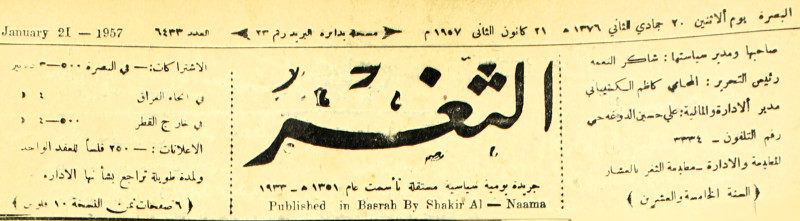 البصرة يوم ألاثنين ٢٠ جمادي الثاني ١٣٧٦ هـ ٢١ كانون الثاني ١٩٥٧ م
مسجلة بدائرة البريد رقم ٢٣
العدد ٦٤٣٣
January 21 - 1957
صاحبها ومدير سياستها : شاكر النعمه
رئيس التحرير : المحامي كاظم الكشيباني
مدير ألادارة والمالية : علي حسين الدوغه جي
رقم التلفون - ٣٣٣٤
المطبعة والادارة - مطبعة الثغر بالعشار
( السنة الخامسة والعشرين )
الثغر
جريدة يومية سياسية مستقلة تأسست عام ١٣٥١ هـ - ١٩٣٣
Published in Basrah By Shakir Al - Naama
الاشتراكات :- في البصرة ٥٠٠-٣
في انحاء العراق ٤
في خارج القطر ٥٠٠-٤
الاعلانات : - ٢٥٠ فلساً للعقد الواحد
ولمدة طويلة تراجع بشأنها الاداره
( ٦ صفحات ثمن النسخة ١٠ فلوس )